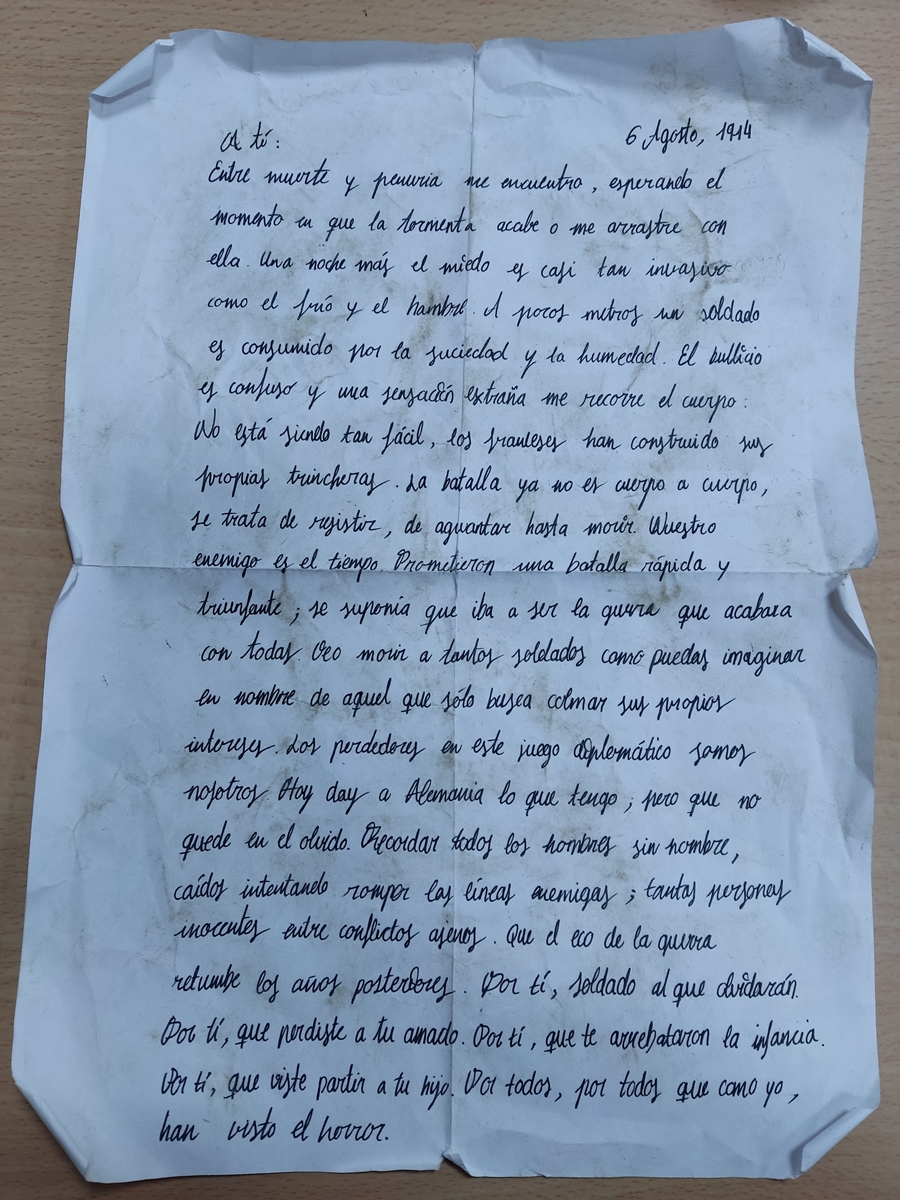 A tí:
6 Agosto, 1914
Entre muerte y penuria me encuentro, esperando el
momento en que la tormenta acabe o me arrastre con
ella. Una noche más el miedo es casi tan invasivo
como el frío y el hambre. A pocos metros un soldado
es consumido por la suciedad y la humedad. El bullicio
es confuso y una sensación extraña me recorre el cuerpo:
No está siendo tan fácil, los franceses han construido sus
propias trincheras. La batalla ya no es cuerpo a cuerpo,
se trata de resistir, de aguantar hasta morir. Nuestro
enemigo es el tiempo. Prometieron una batalla rápida y
triunfante; se suponía que iba a ser la guerra que acabara
con todas. Veo morir a tantos soldados como puedas imaginar
en nombre de aquel que sólo busca colmar sus propios
intereses. Los perdedores en este juego diplomático somos
nosotros. Hoy day a Alemania lo que tengo; pero que no
quede en el olvido. Recordar todos los hombres sin nombre,
caídos intentando romper las líneas enemigas; tantas personas
inocentes entre conflictos ajenos. Que el eco de la guerra
retumbe los años posteriores. Por tí, soldado al que olvidarán.
Por tí, que perdiste a tu amado. Por tí, que te arrebataron la infancia.
Por tí, que viste partir a tu hijo. Por todos, por todos que como yo,
han visto el horror.